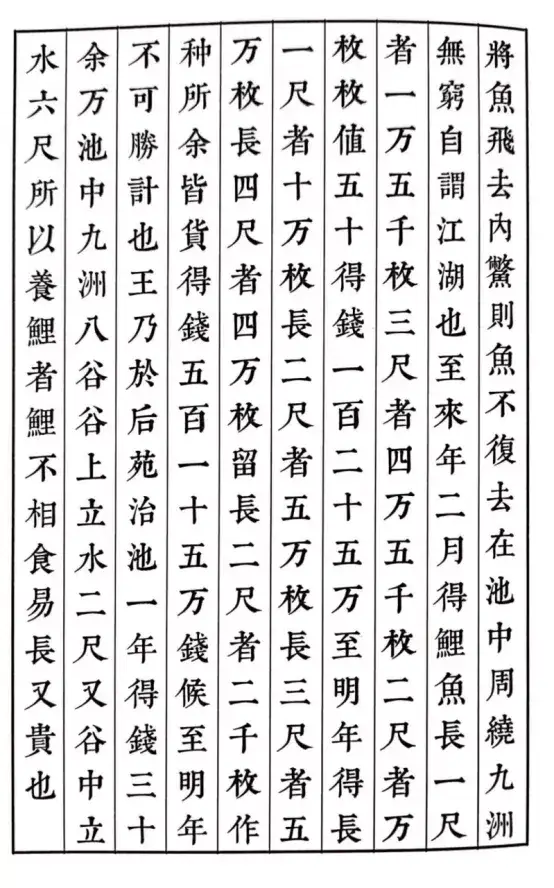 將魚飛去內鱉則魚不復去在池中周繞九洲
無窮自謂江湖也至來年二月得鯉魚長一尺
者一万五千枚三尺者四万五千枚二尺者万
枚枚值五十得錢一百二十五万至明年得長
一尺者十万枚長二尺者五万枚長三尺者五
万枚長四尺者四万枚留長二尺者二千枚作
种所余皆貨得錢五百一十五万錢候至明年
不可勝計也王乃於后苑治池一年得錢三十
余万池中九洲八谷谷上立水二尺又谷中立
水六尺所以養鯉者鯉不相食易長又貴也